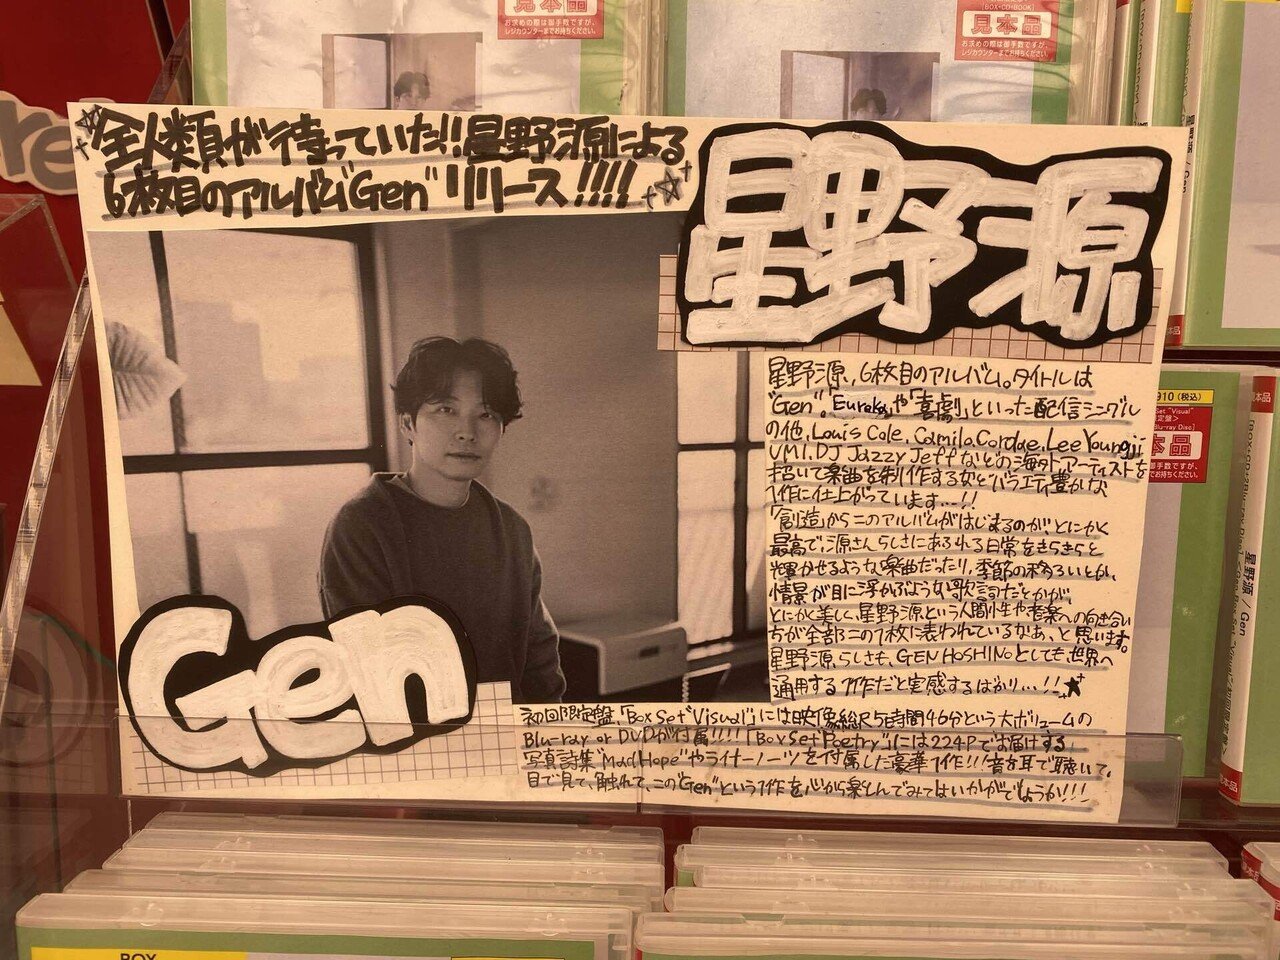 [BOX+CD+BOOK]
見本品
お求めの際は御手数ですが、
レジカウンターまでお持ちください。
見本品
お求めの際は御手数ですが、
レジカウンターまでお持ちください。
全人類が待っていた!!星野源による
6枚目のアルバム"Gen"リリース!!!!
星野源
星野源、6枚目のアルバム。タイトルは
"Gen"。「Eureka」や「喜劇」といった配信シングル
の他、Louis Cole、Camilo、Cordae、Lee Youngji
UMI、DJ Jazzy Jeffなどの海外アーティストを
招いて楽曲を制作するなどバラエティ豊かな
1作に仕上がっています…!!
「創造」からこのアルバムがはじまるのが、とにかく
最高で、源さんらしさにあふれる日常をきらきらと
輝かせるような楽曲だったり、季節の移ろいとか、
情景が目に浮かぶような歌詞だとかが、
とにかく美しく、星野源という人間性や音楽への向き合い
方が全部この1枚に表われているなあ、と思います。
星野源らしさも、GEN HOSHINOとしても、世界へ
通用する1作だと実感するばかり…!!
Gen
初回限定盤、「Box Set "Visual"」には映像総尺5時間46分という大ボリュームの
Blu-ray or DVDが付属!!!!「Box Set Poetry」には224Pでお届けする
写真詩集"Mad Hope"やライナーノーツを付属した豪華1作!!!音を耳で聴いて、
目で見て、触れて、この"Gen"という1作を心から楽しんでみてはいかがでしょうか!!!
星野源 / Gen
910(税込)
見本品
星野源 / Gen
見本品
BOX